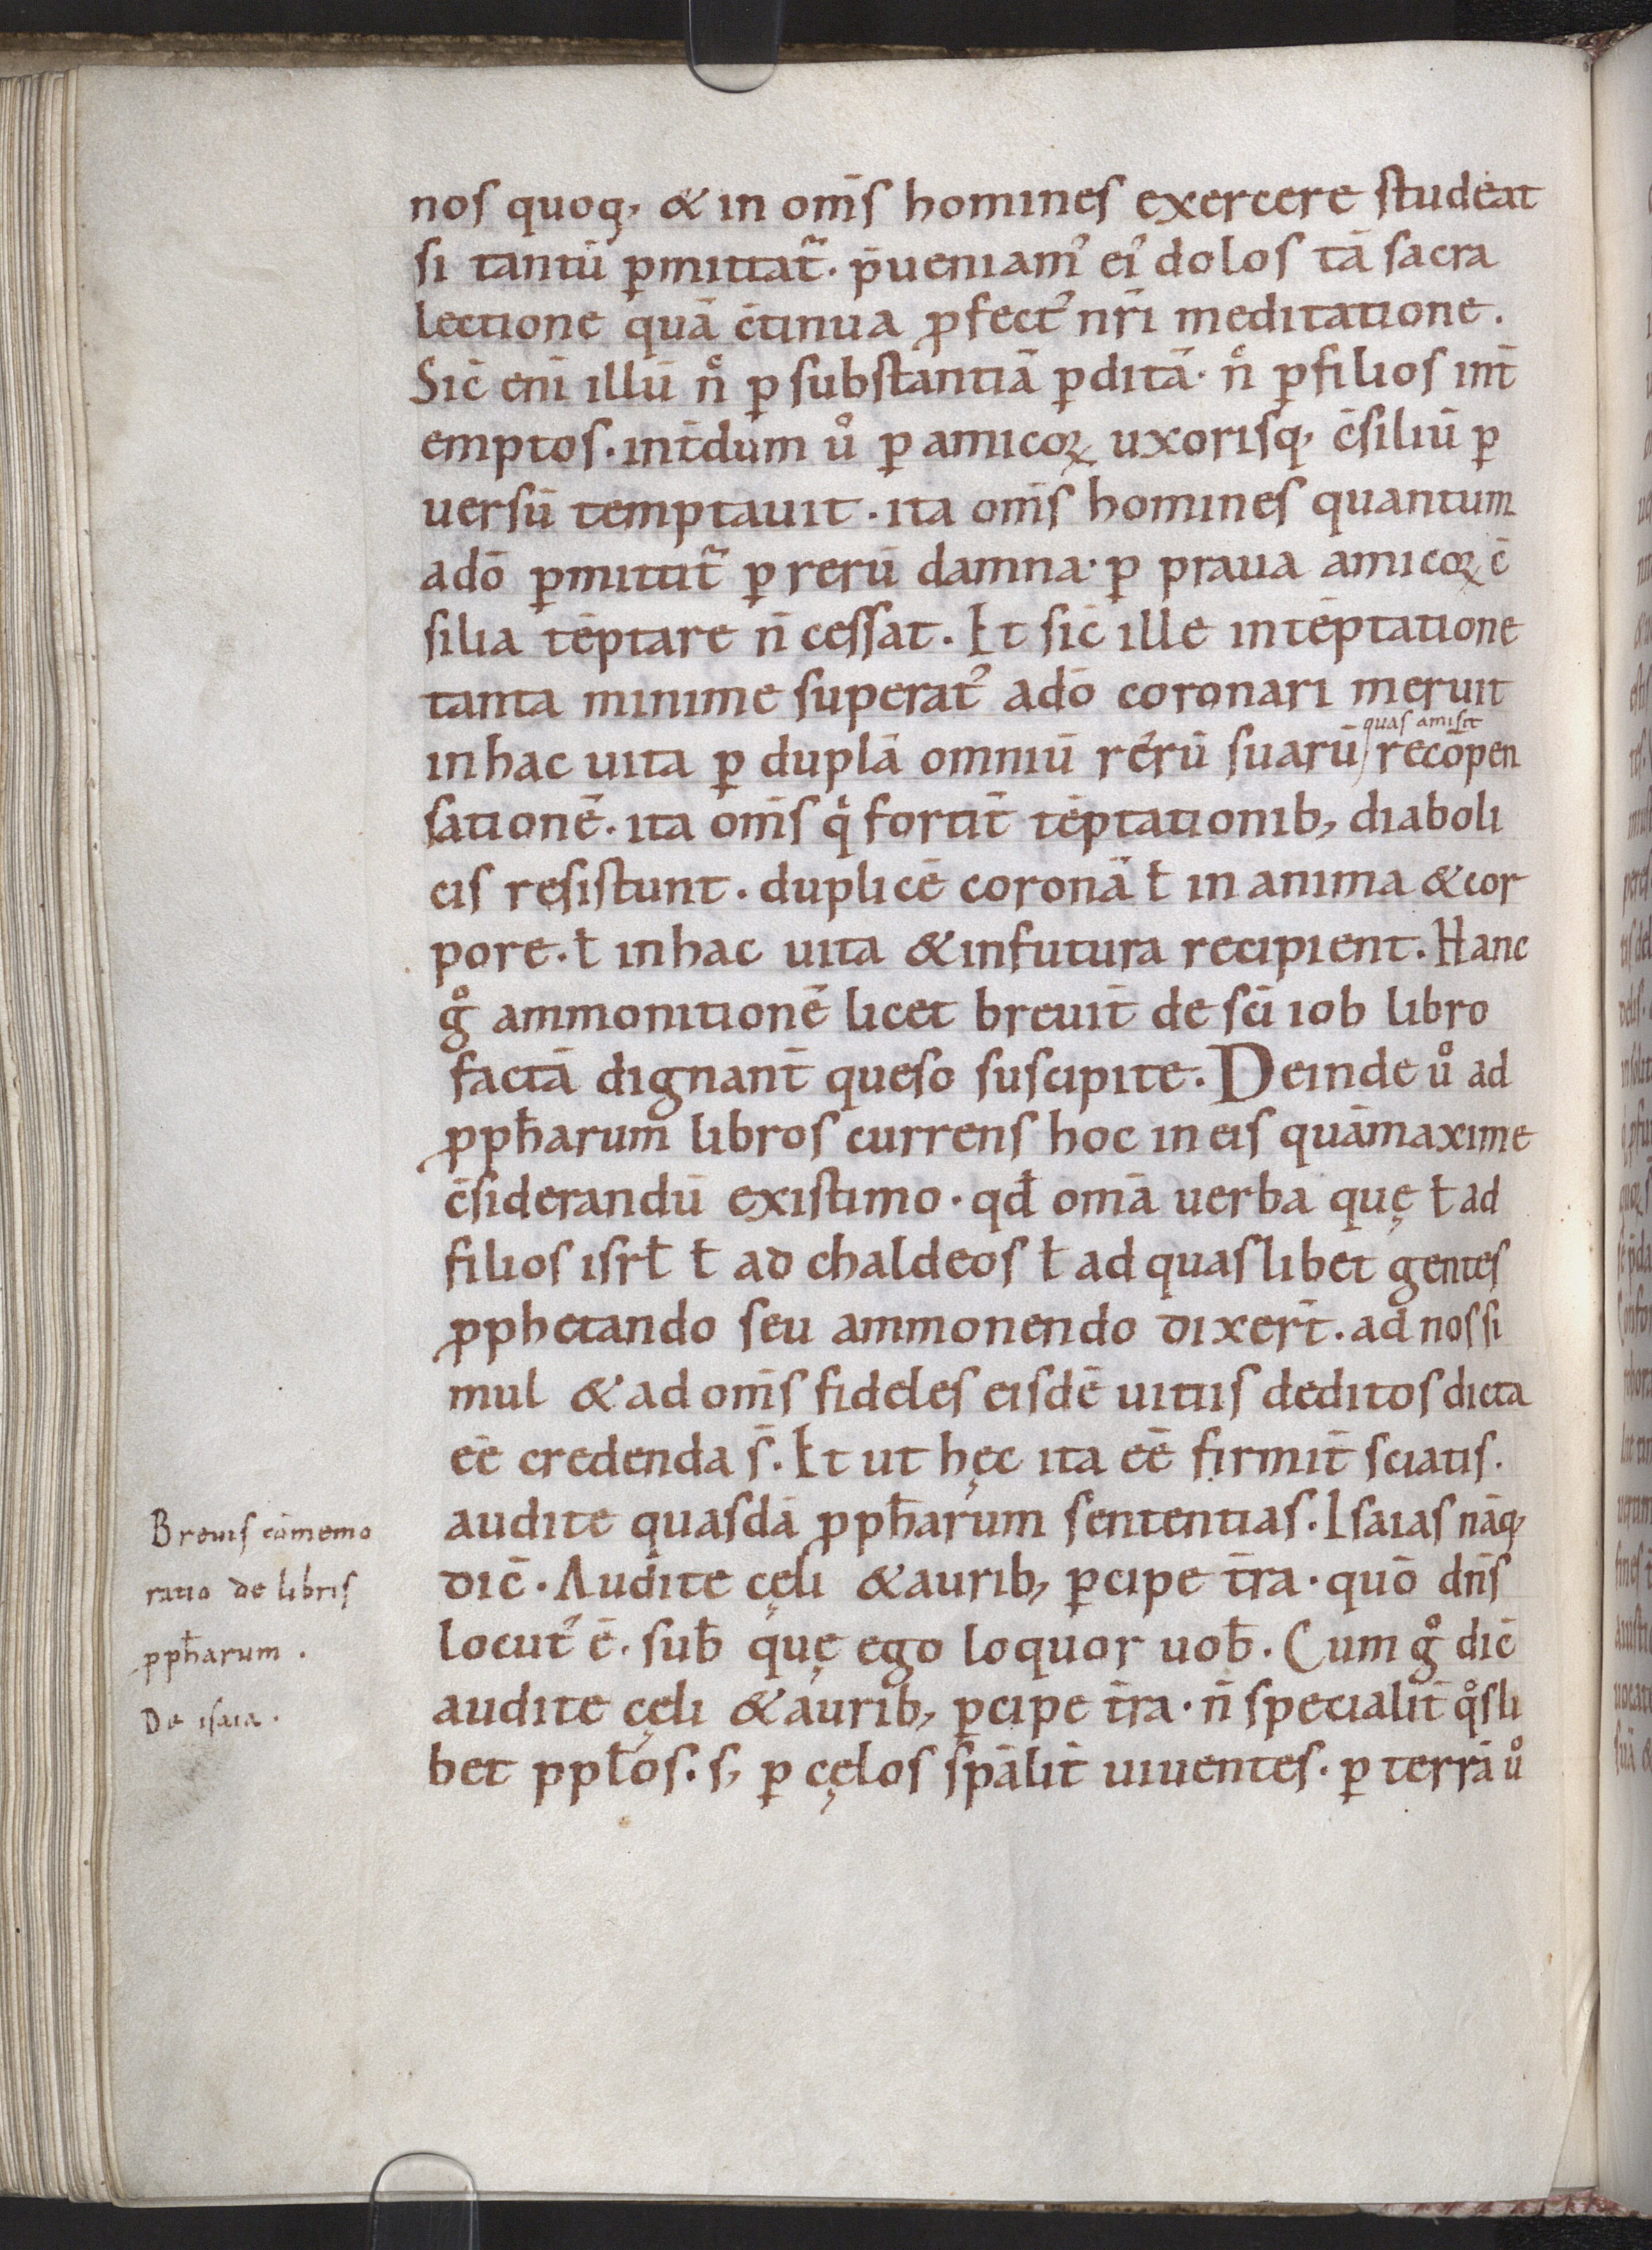 nos quoq, & in om̄s homines exercere studeat
si tantū ꝑmittat᷑. p̄ueniamꝰ eiꝰ dolos tā sacra
lectione quā c̄tinua ꝓfectꝰ nr̄i meditatione.
Sic̄ eni̅ illū n̊ ꝑ substantiā ꝑditā. n̊ ꝑ filios int̄
emptos. int̄dum ů ꝑ amicoꝝ uxorisq, c̄siliū ꝑ
uersū temptauit. ita om̄s homines quantum
adō ꝑmittit᷑ ꝑ rerū damna. ꝑ praua amicoꝝ c̄
silia tēptare n̄ cessat. Et sic̄ ille intēptatione
tanta minime superatꝰ adō coronari meruit
quas amisit
in hac uita ꝑ duplā omniū rerū suarū recōpen
sationē. ita om̄s qi fortit̄ tēptationib, diaboli
cis resistunt. duplicē coronā ł in anima & cor
pore. ł in hac uita & infutura recipient. Hanc
g̊ ammonitionē licet breuit̄ de sc̄i iob libro
factā dignant̄ queso suscipite. Deinde ů ad
ꝓpħarum libros currens hoc in eis quāmaxime
c̄siderandū existimo. qđ om̄a uerba quę ł ad
filios isrł ł ad chaldeos ł ad quaslibet gentes
ꝓphetando seu ammonendo dixer̄t. ad nos si
mul & ad om̄s fideles eisdē uitiis deditos dicta
eē credenda s̄. Et ut hęc ita eē firmit̄ sciatis.
audite quasdā ꝓpħarum sententias. Isaias nāq,
dic̄. Audite cęli & aurib, ꝑcipe t̄ra. quō dn̄s
locutꝰ ē. sub̄ quę ego loquor uob̄. Cum g̊ dic̄
audite cęli & aurib, ꝑcipe t̄ra. n̄ specialit̄ q̊sli
bet ppłos. s, ꝑ cęlos sp̄alit̄ uiuentes. ꝑ terrā ů
Breuis cōmemo
ratio de libris
ꝓpħarum.
De isaia.